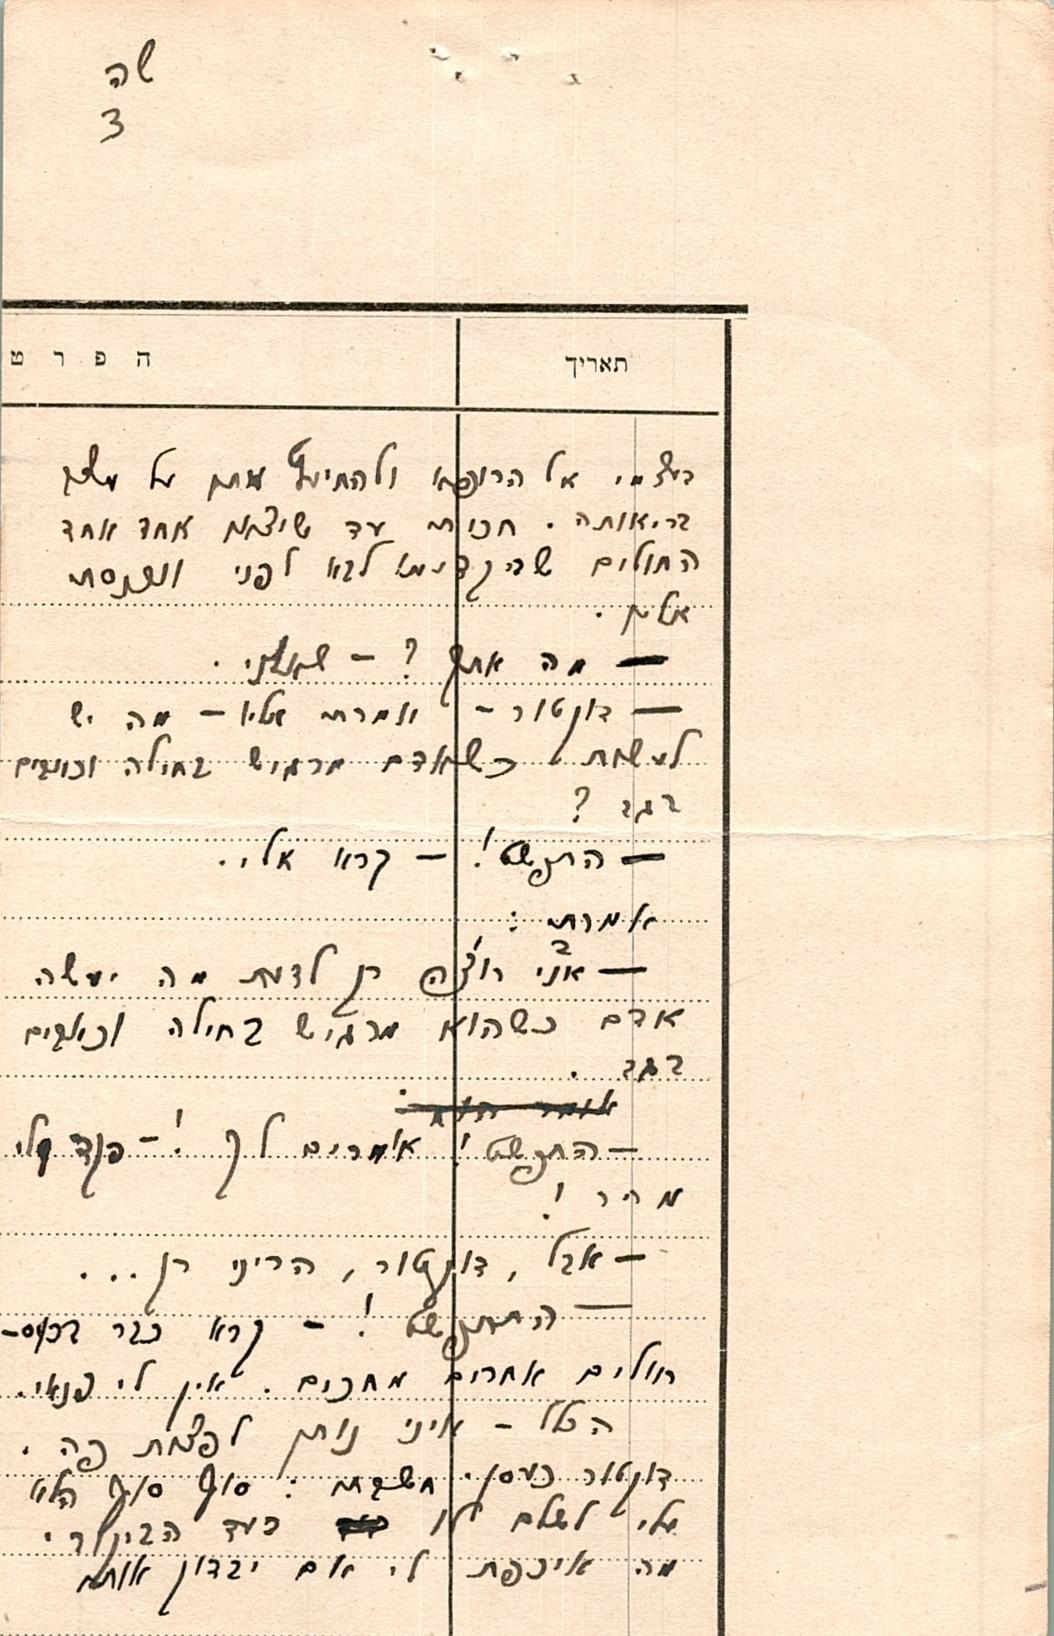 שה
3
תאריך
ה פ ר ט
בעצמי אל הרופא ולהתיעץ אתו על מצב
בריאותה. חכיתי עד שיצאו אחד אחד
החולים שהקדימו לבא לפני ונכנסתי
אליו.
— מה אתך? – שאלני.
— דוקטור – אמרתי אליו – מה יש
לעשות כשאדם מרגיש בחילה וכואבים
בגב?
— התפשט! – קרא אלי.
אמרתי:
— אני רוצה רק לדעת מה יעשה
אדם כשהוא מרגיש בחילה וכואבים
בגב.
— התפשט! אומרים לך! – פקד עלי
מהר!
— אבל, דוקטור, הריני רק...
— התפשט! – קרא כבר בכעס –
חולים אחרים מחכים. אין לי פנאי.
הלל – איני נותן לפצות פה.
דוקטור כועס. חשבתי: סוף סוף הלא
עלי לשלם לו בעד הביקור.
מה איכפת לי אם יבדוק אותי